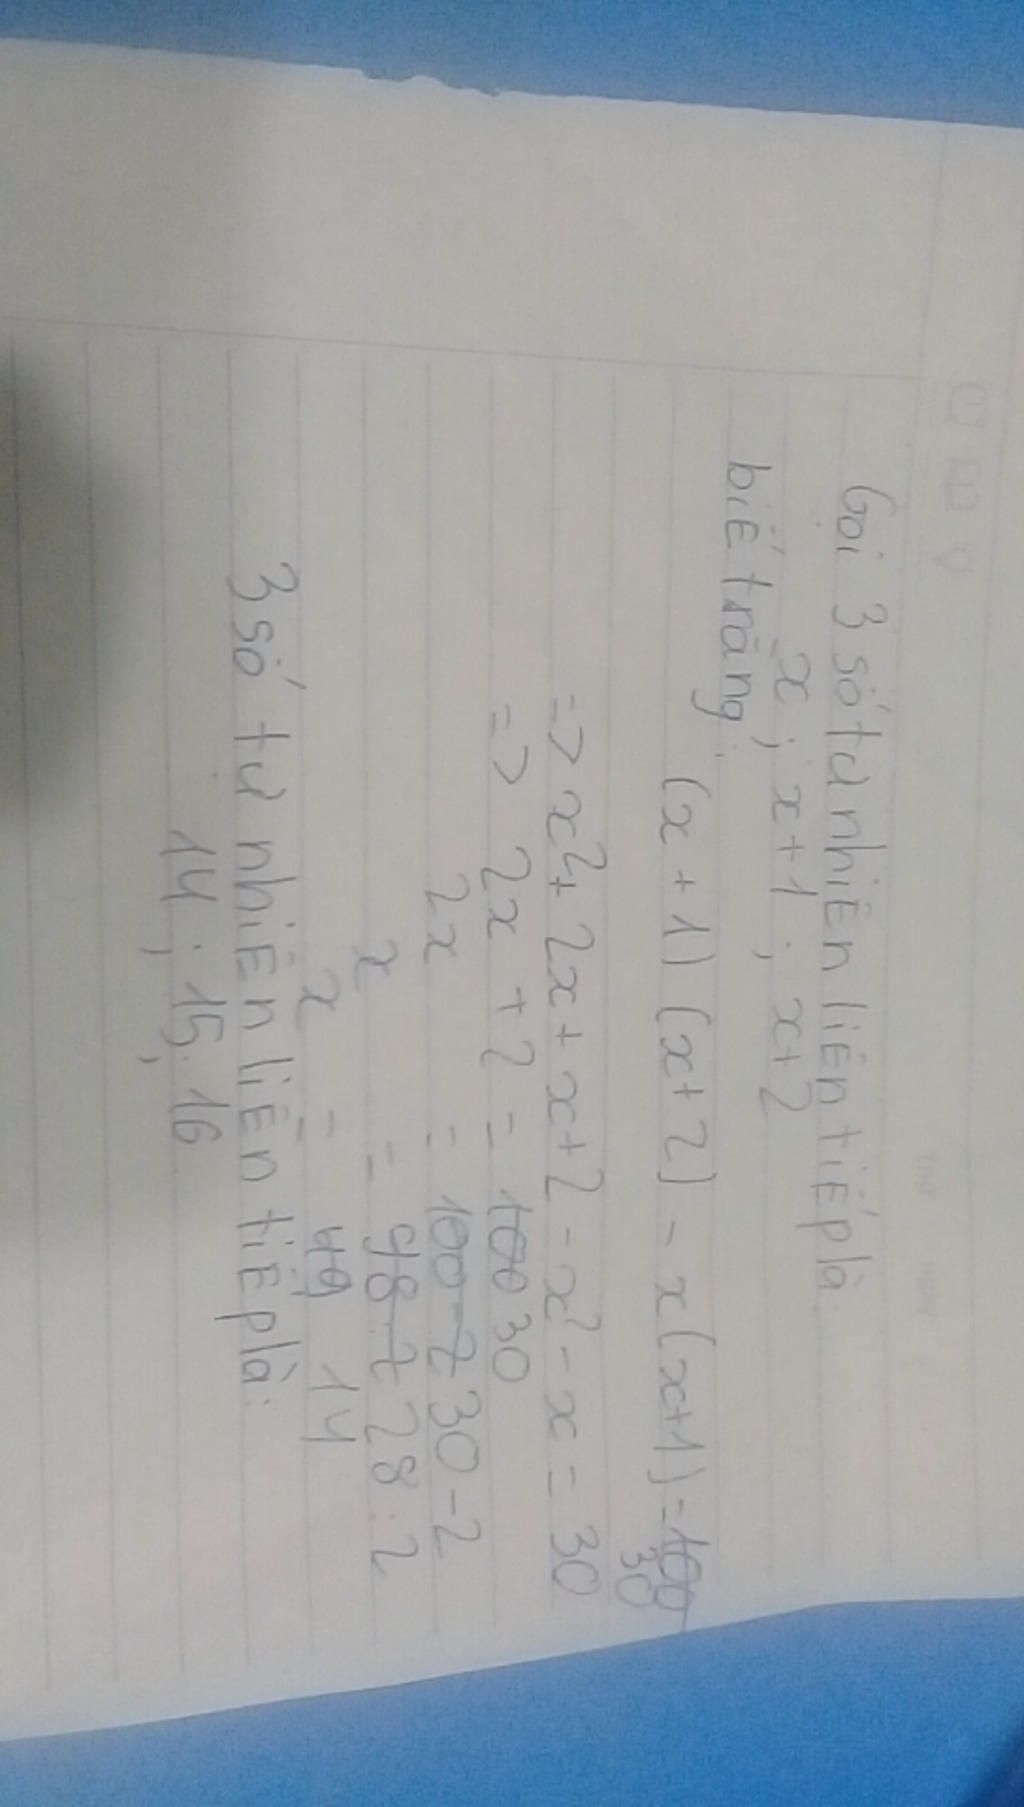 Gọi 3 số tự nhiên liên tiếp là:
x ; x+1 ; x+2
biết rằng:
(x+1)(x+2) - x(x+1) = 100 30
=> x² + 2x + x + 2 - x² - x = 30
=> 2x + 2 = 100 30
2x = 100-2 30-2
x = 98:2 28:2
x = 49 14
3 số tự nhiên liên tiếp là:
14 ; 15 ; 16